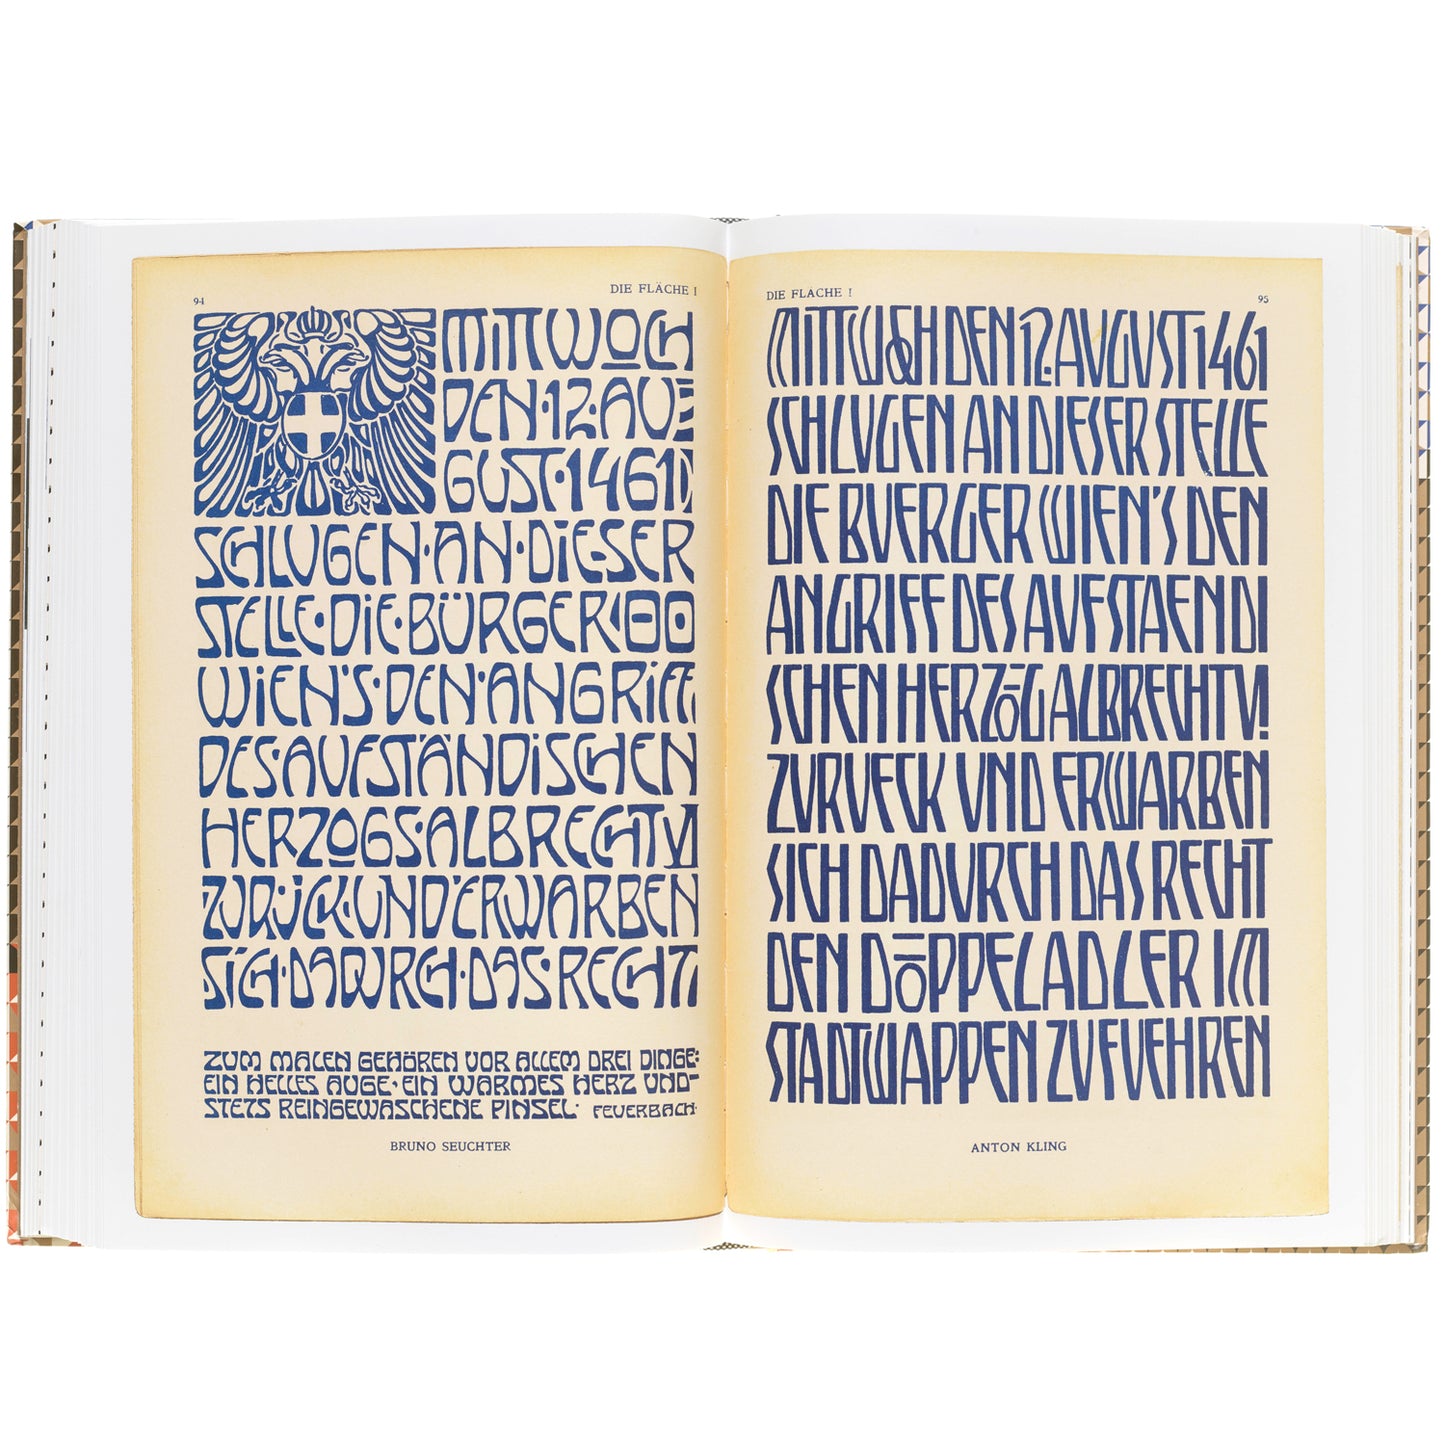 94
DIE FLÄCHE I
MITTWOCH
DEN·12·AU
GUST·1461
SCHLUGEN·AN·DIESER
STELLE·DIE·BÜRGER
WIEN'S·DEN·ANGRIFF
DES·AUFSTÄNDISCHEN
HERZOGS·ALBRECHT VI
ZURÜCK·UND ERWARBEN
SICH·DADURCH·DAS·RECHT
ZUM MALEN GEHÖREN VOR ALLEM DREI DINGE:
EIN HELLES AUGE·EIN WARMES HERZ UND
STETS REINGEWASCHENE PINSEL· FEUERBACH·
BRUNO SEUCHTER
DIE FLÄCHE I
95
MITTWOCH DEN 12. AUGUST 1461
SCHLUGEN AN DIESER STELLE
DIE BUERGER WIEN'S DEN
ANGRIFF DES AUFSTAENDI
SCHEN HERZOG ALBRECHT VI
ZURUECK UND ERWARBEN
SICH DADURCH DAS RECHT
DEN DOPPELADLER IM
STADTWAPPEN ZU FUEHREN
ANTON KLING